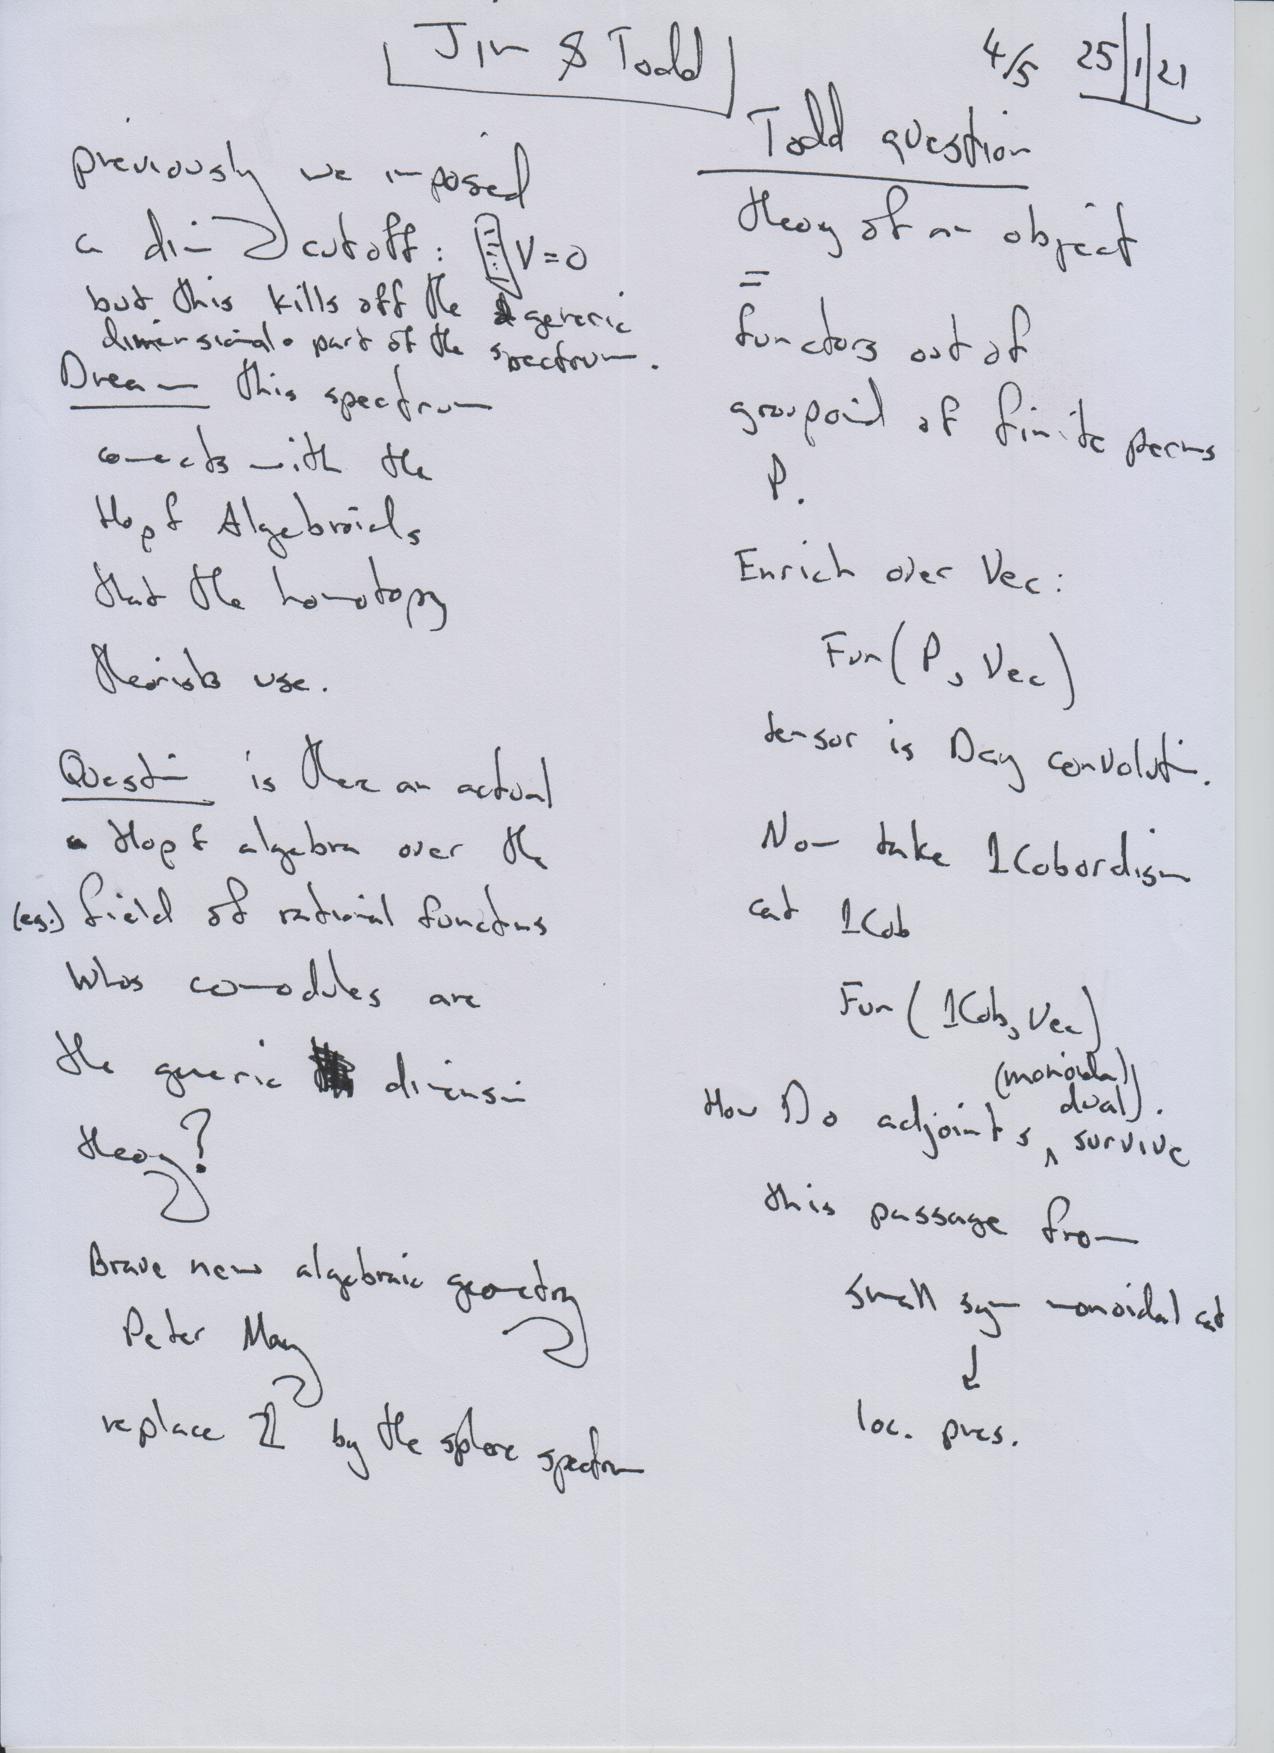 Jim & Todd
4/5 25/1/21
previously we imposed
a dim cutoff: V=0
but this kills off the generic
dimensional part of the spectrum.
Dream this spectrum
connects with the
Hopf Algebroids
that the homotopy
theorists use.
Question is there an actual
a Hopf algebra over the
(eg.) field of rational functions
whos comodules are
the generic dimension
theory?
Brave new algebraic geometry
Peter May
replace ℤ by the sphere spectrum
Todd question
theory of an object
=
functors out of
groupoid of finite perms
P.
Enrich over Vec:
Fun(P, Vec)
tensor is Day convolution.
Now take 1Cobordism
cat 1Cob
Fun(1Cob, Vec)
(monoidal
dual).
How Do adjoints ^ survive
this passage from
small sym monoidal cat
↓
loc. pres.